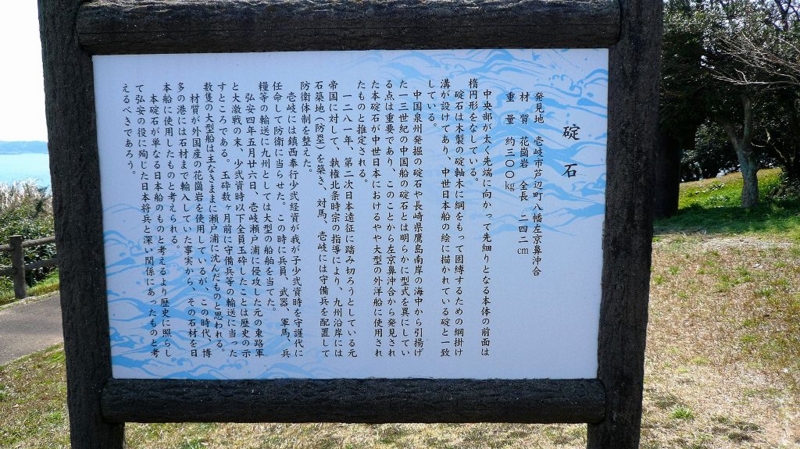 碇石
発見地　壱岐市芦辺町八幡左京鼻沖合
材　質　花崗岩　全長　二四二㎝
重　量　約三〇〇㎏
中央部が太く先端に向かって先細りとなる本体の前面は
楕円形をなしている。
碇石は木製の碇軸木に綱をもって固縛するための綱掛け
溝が設けてあり、中世日本船の絵に描かれている碇と一致
している。
中国泉州発掘の碇石や長崎県鷹島南岸の海中から引揚げ
た十三世紀の中国船の碇石とは明らかに型式を異にしてい
る点は重要であり、このことから左京鼻沖合から発見され
た本碇石が中世日本におけるやや大型の外洋船に使用され
たものと推定される。
一二八一年、第二次日本遠征に踏み切ろうとしている元
帝国に対して、執権北条時宗の指導により、九州沿岸には
石築地（防塁）を築き、対馬、壱岐には守備兵を配置して
防衛体制を整えた。
壱岐には鎮西奉行少弐経資が我が子少弐資時を守護代に
任命して防衛に当らせた。この時に兵員、武器、軍馬、兵
糧等の輸送に九州としては大型の船舶を当てた。
弘安四年五月廿六日、壱岐瀬戸浦に侵攻した元の東路軍
と大激戦の末、少弐資時以下全員玉砕したことは歴史の示
すところである。玉砕数ヶ月前に守備兵等の輸送に当った
数隻の大型船は主なきままに瀬戸浦に沈んだものと思われる。
材質が外国産の花崗岩を使用しているが、この時代、博
多の港には石材まで輸入していた事実から、その石材を日
本船に使用したものと考えられる。
本碇石が単なる日本船のものと考えるより歴史に照らし
て弘安の役に殉じた日本将兵と深い関係にあったものと考
えるべきであろう。